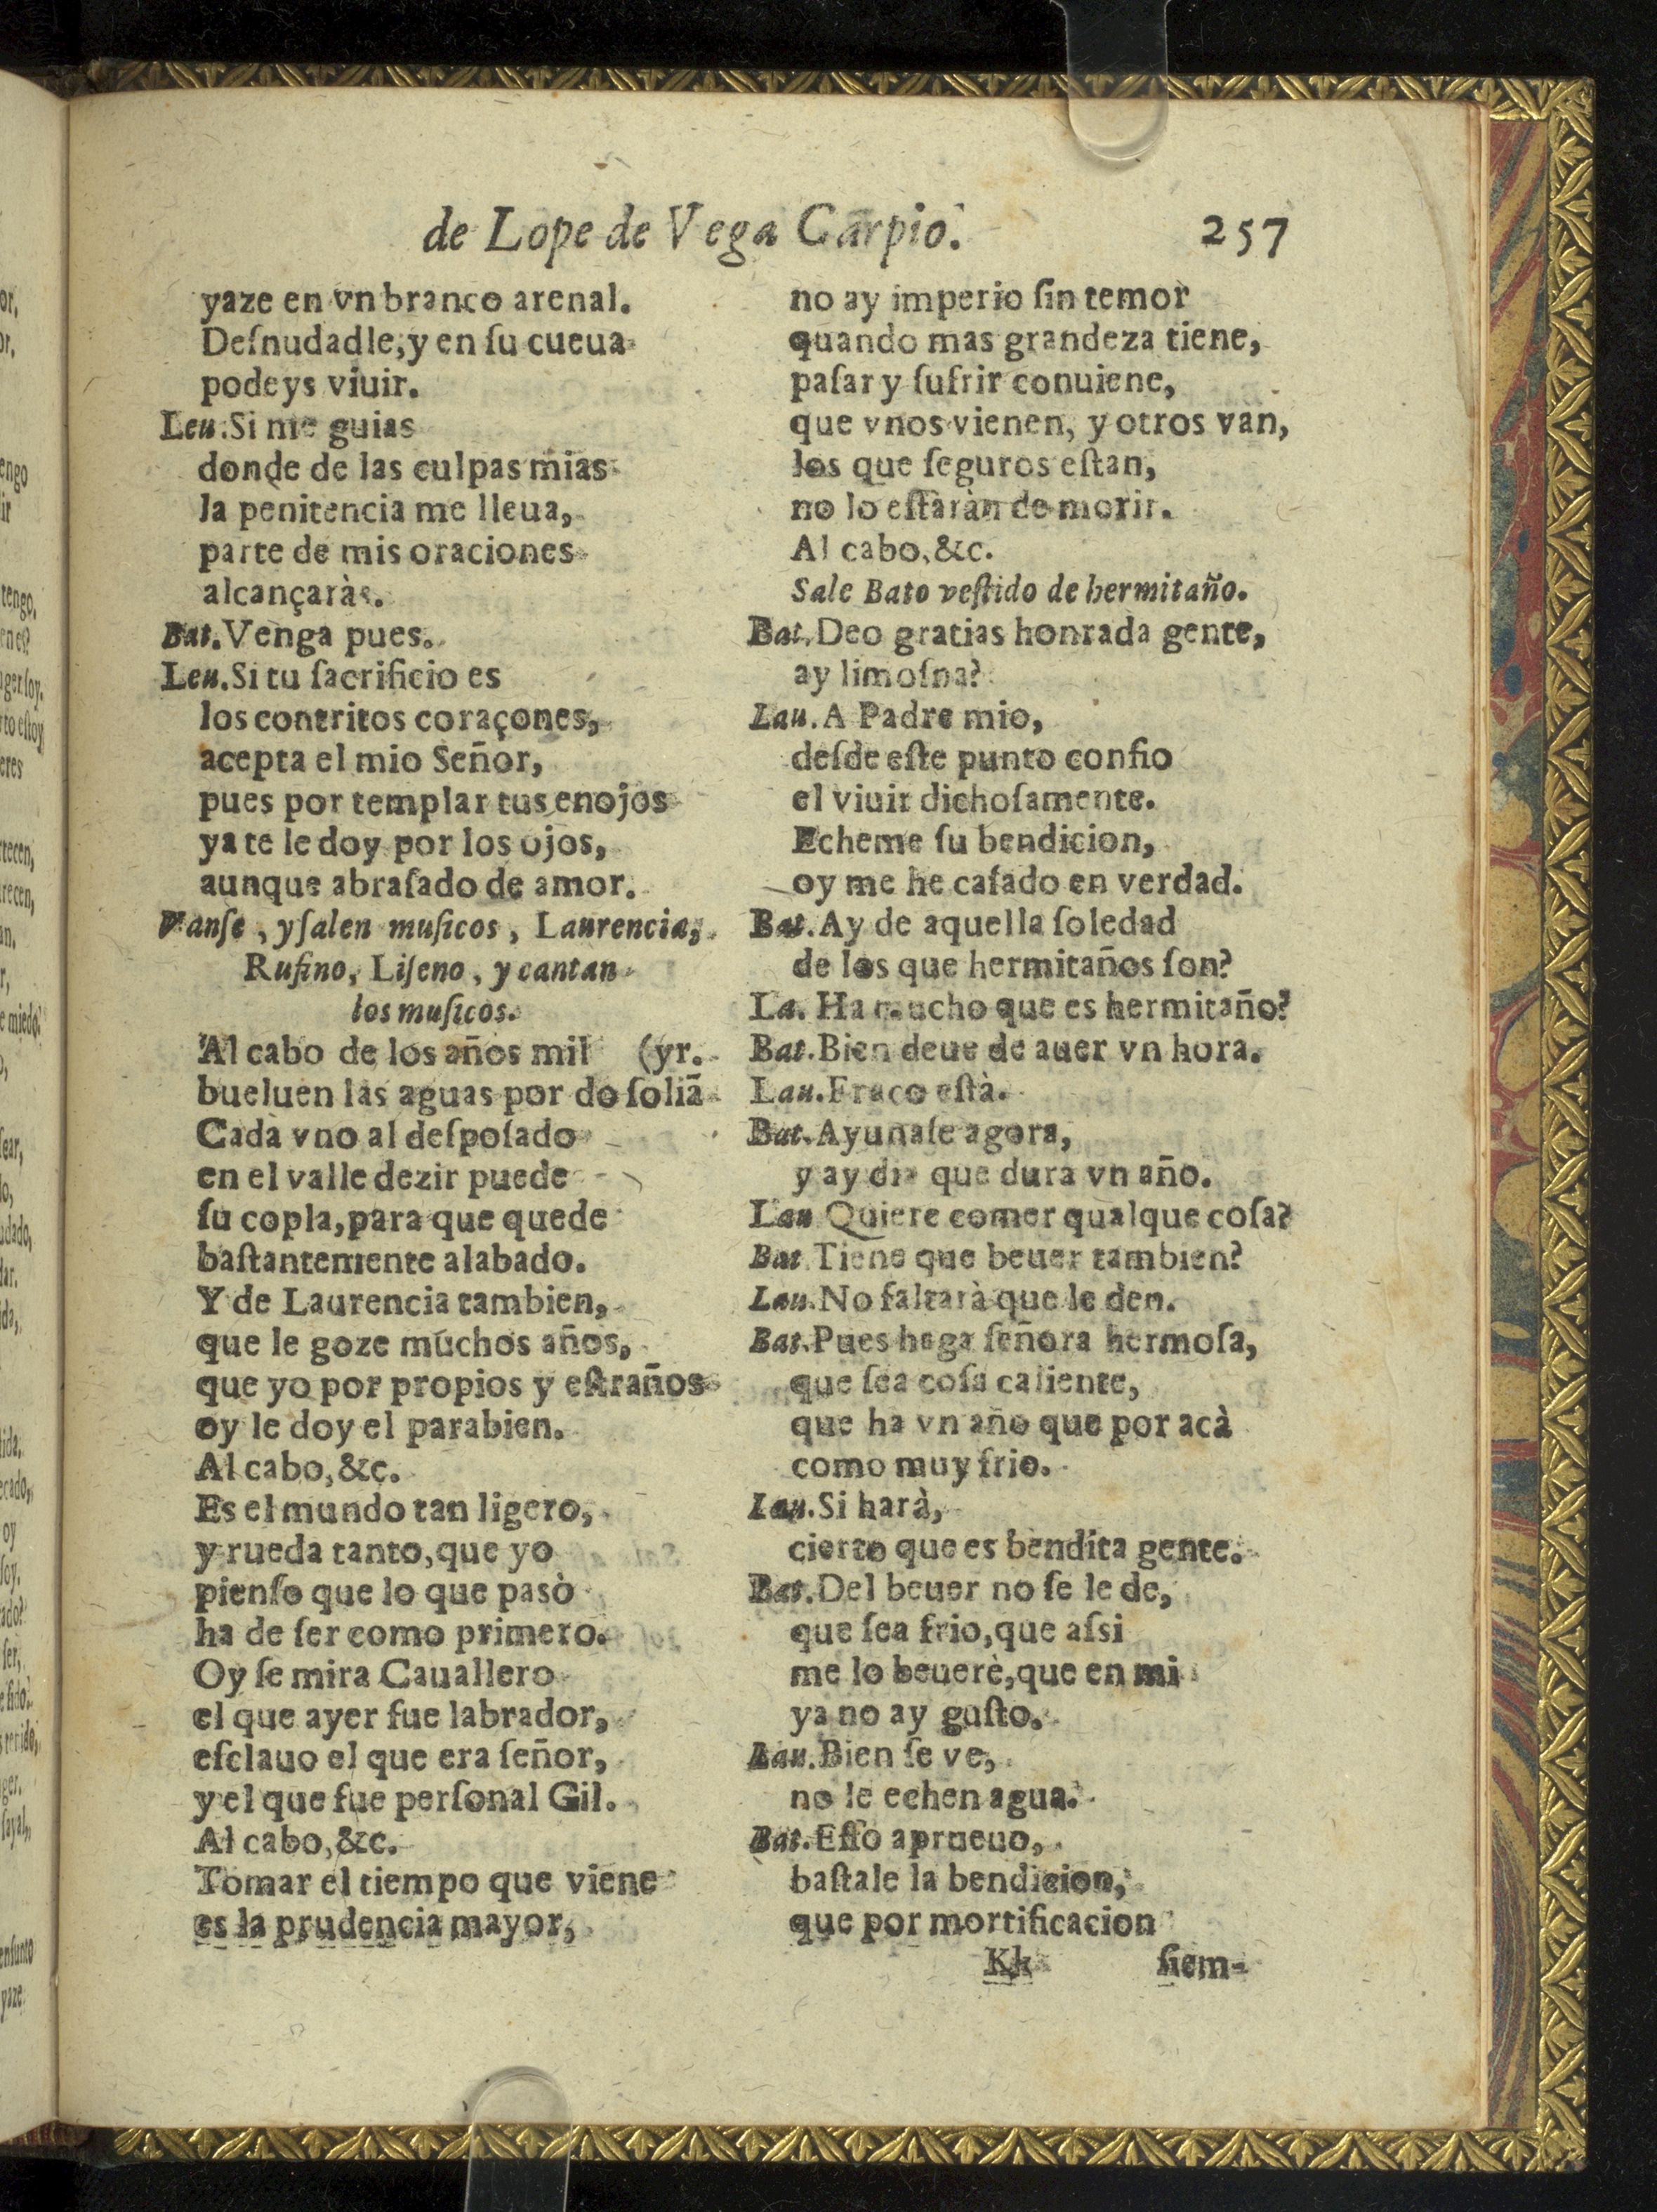 de Lope de Vega Carpio. 257
yaze en vn branco arenal.
Deſnudadle, y en ſu cueua
podeys viuir.
Leu. Si me guias
donde de las culpas mias
la penitencia me lleua,
parte de mis oraciones
alcançaràs.
Bat. Venga pues.
Leu. Si tu ſacrificio es
los contritos coraçones,
acepta el mio Señor,
pues por templar tus enojos
ya te le doy por los ojos,
aunque abraſado de amor.
Vanſe, y ſalen muſicos, Laurencia,
Rufino, Liſeno, y cantan
los muſicos.
Al cabo de los años mil (yr.
bueluen las aguas por do ſoliã
Cada vno al deſpoſado
en el valle dezir puede
ſu copla, para que quede
baſtantemente alabado.
Y de Laurencia tambien,
que le goze muchos años,
que yo por propios y eſtraños
oy le doy el parabien.
Al cabo, &c.
Es el mundo tan ligero,
y rueda tanto, que yo
pienſo que lo que pasò
ha de ſer como primero.
Oy ſe mira Cauallero
el que ayer fue labrador,
eſclauo el que era ſeñor,
y el que fue perſonal Gil.
Al cabo, &c.
Tomar el tiempo que viene
es la prudencia mayor,
no ay imperio ſin temor
quando mas grandeza tiene,
paſar y ſufrir conuiene,
que vnos vienen, y otros van,
los que ſeguros eſtan,
no lo eſtaràn de morir.
Al cabo, &c.
Sale Bato veſtido de hermitaño.
Bat. Deo gratias honrada gente,
ay limoſna?
Lau. A Padre mio,
deſde eſte punto confio
el viuir dichoſamente.
Echeme ſu bendicion,
oy me he caſado en verdad.
Bat. Ay de aquella ſoledad
de los que hermitaños ſon?
La. Ha mucho que es hermitaño?
Bat. Bien deue de auer vn hora.
Lau. Fraco eſtà.
Bat. Ayunaſe agora,
y ay dia que dura vn año.
Lau Quiere comer qualque coſa?
Bat Tiene que beuer tambien?
Lau. No faltarà que le den.
Bat. Pues haga ſeñora hermoſa,
que ſea coſa caliente,
que ha vn año que por acà
como muy frio.
Lau. Si harà,
cierto que es bendita gente.
Bat. Del beuer no ſe le de,
que ſea frio, que aſsi
me lo beuerè, que en mi
ya no ay guſto.
Lau. Bien ſe ve,
no le echen agua.
Bat. Eſſo aprueuo,
baſtale la bendicion,
que por mortificacion
Kk ſiem-